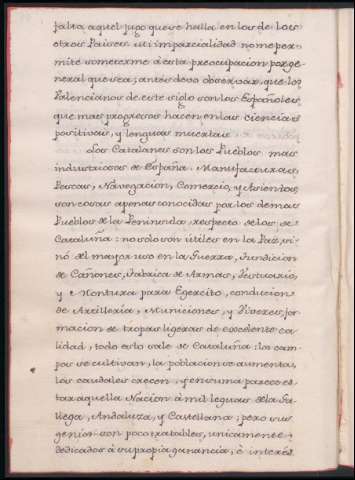 falta aquel jugo que se halla en los de los
otros Paises. Mi imparcialidad no me per-
mite someterme á esta preocupacion por ge-
neral que sea; antes devo observar, que los
Valencianos de este siglo son los Españoles,
que mas progresos hacen en las ciencias
positivas, y lenguas muertas.
Los Catalanes son los Pueblos mas
industriosos de España. Manufacturas,
Pescas, Navegacion, Comercio, y Asientos,
son cosas apenas conocidas por los demas
Pueblos de la Peninsula, respecto de los de
Cataluña: no solo son útiles en la Paz, si-
nó del mayor uso en la Guerra, Fundicion
de Cañones, Fabrica de Armas, Vestuario,
y Montura para Egercito, conducion
de Artilleria, Municiones, y Viveres, for-
macion de tropas ligeras de excelente ca-
lidad, todo esto sale de Cataluña: los cam-
pos se cultivan, la poblacion se aumenta,
los caudales crecen, y en suma parece es-
tar aquella Nacion á mil leguas de la Ga-
llega, Andaluza, y Castellana; pero sus
genios son poco tratables, unicamente
dedicados á su propia ganancia, é interés.